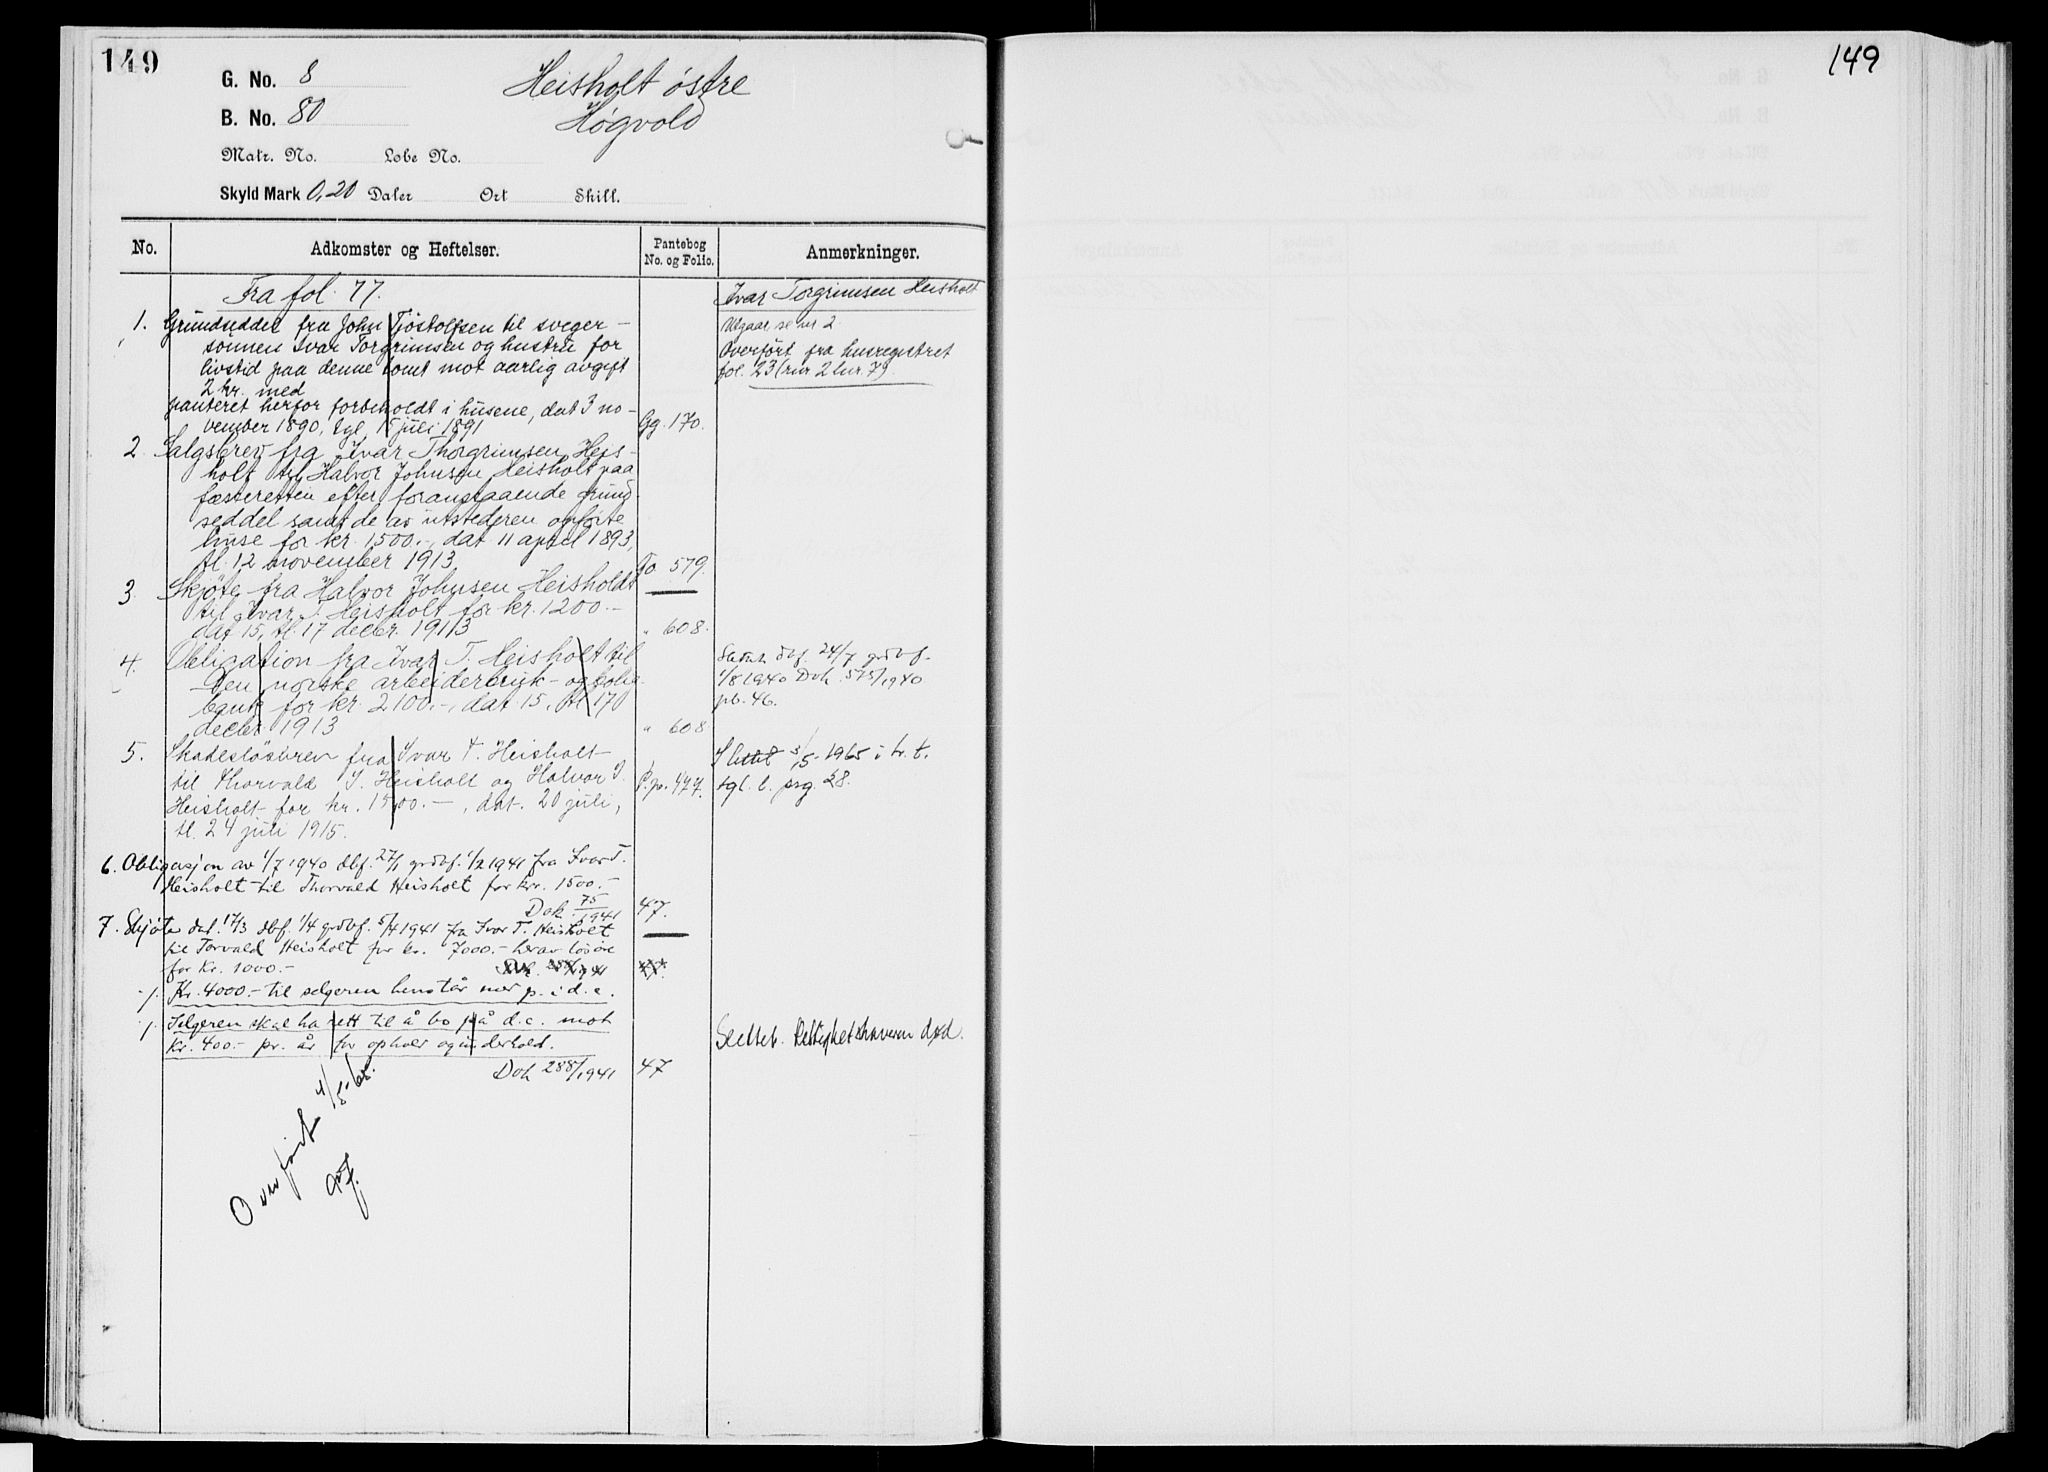 149
G. No. 8
Heisholt østre
B. No. 80
Høgvold
Matr. No. Løbe No.
Skyld Mark 0,20 Daler Ort Skill.
No. Adkomster og Heftelser. Pantebog No. og Folio. Anmerkninger.
Fra fol. 77.
Ivar Torgrimsen Heisholt
1. Grundseddel fra John Tjöstolfsen til sveger-
sönnen Ivar Torgrimsen og hustru for
livstid paa denne tomt mot aarlig avgift
2 kr. med
panteret herfor forbeholdt i husene, dat 3 no-
vember 1890, tgl. 15 juli 1891 Gg. 170.
Utgaar se nr 2.
Overført fra husregistret
fol. 23
2 Salgsbrev fra Ivar Thorgrimsen Heis-
holt til Halvor Johnsen Heisholt paa
fæsteretten efter foranstaaende grund-
seddel samt de av utstederen opförte
huse for kr. 1500.-, dat 11 april 1893,
tl. 12 november 1913. Fo. 579.
3 Skjöte fra Halvor Johnsen Heisholdt
til Ivar T. Heisholt for kr. 1200.-
dat 15, tl. 17 decbr. 1913 " 608.
4. Obligation fra Ivar T. Heisholt til
Den norske arbeiderbruk- og bolig-
bank for kr. 2100.-, dat 15, tl 17
decbr 1913 " 608
Slettet dbf. 24/7 grdbf.
1/8 1940 Dok. 575/1940
pb. 46.
5. Skadeslösbrev fra Ivar T. Heisholt
til Thorvald I. Heisholt og Halvor I.
Heisholt for kr. 1500.-, dat. 20 juli,
tl. 24 juli 1915.
P.p. 477.
Slettet 5/5-1965 i h.t.
tgl. l. prg. 28.
6. Obligasjon av 1/7 1940 dbf. 27/1 grdbf. 1/2 1941 fra Ivar T.
Heisholt til Thorvald Heisholt for kr. 1500.-
Dok. 75/1941 47.
7. Skjøte dat. 17/3 dbf. 1/4 grdbf. 5/4 1941 fra Ivar T. Heisholt
til Torvald Heisholt for kr. 7000.- herav løsøre
for kr. 1000.-
Kr. 4000.- til selgeren henstår mot p. i d.e.
Selgeren skal ha rett til å bo på d.e. mot
kr. 400.- pr. år for ophold og underhold.
Dok 288/1941 47
Slettet. Rettighetshaveren død.
Overført 4/5-65.
149